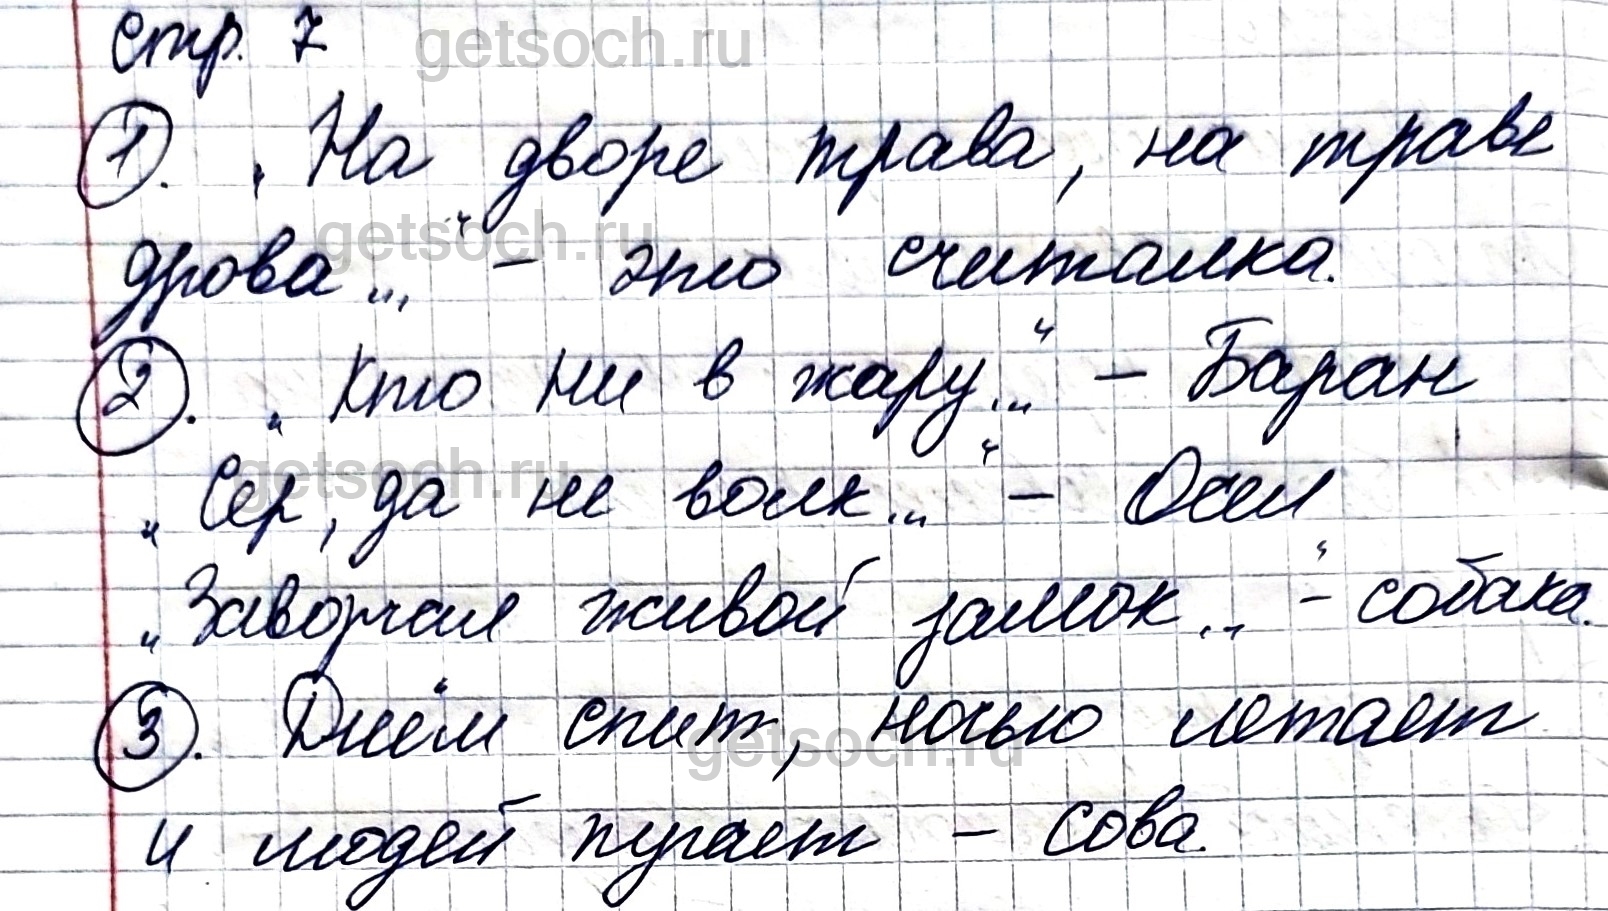 стр. 7
getsoch.ru
1. "На дворе трава, на траве
getsoch.ru
дрова..." - это считалка.
2. "Кто ни в жару..." - Баран
getsoch.ru
"Сер, да не волк..." - Осел
"Заворчал живой замок..." - собака.
3. Днём спит, ночью летает
getsoch.ru
и людей пугает - сова.